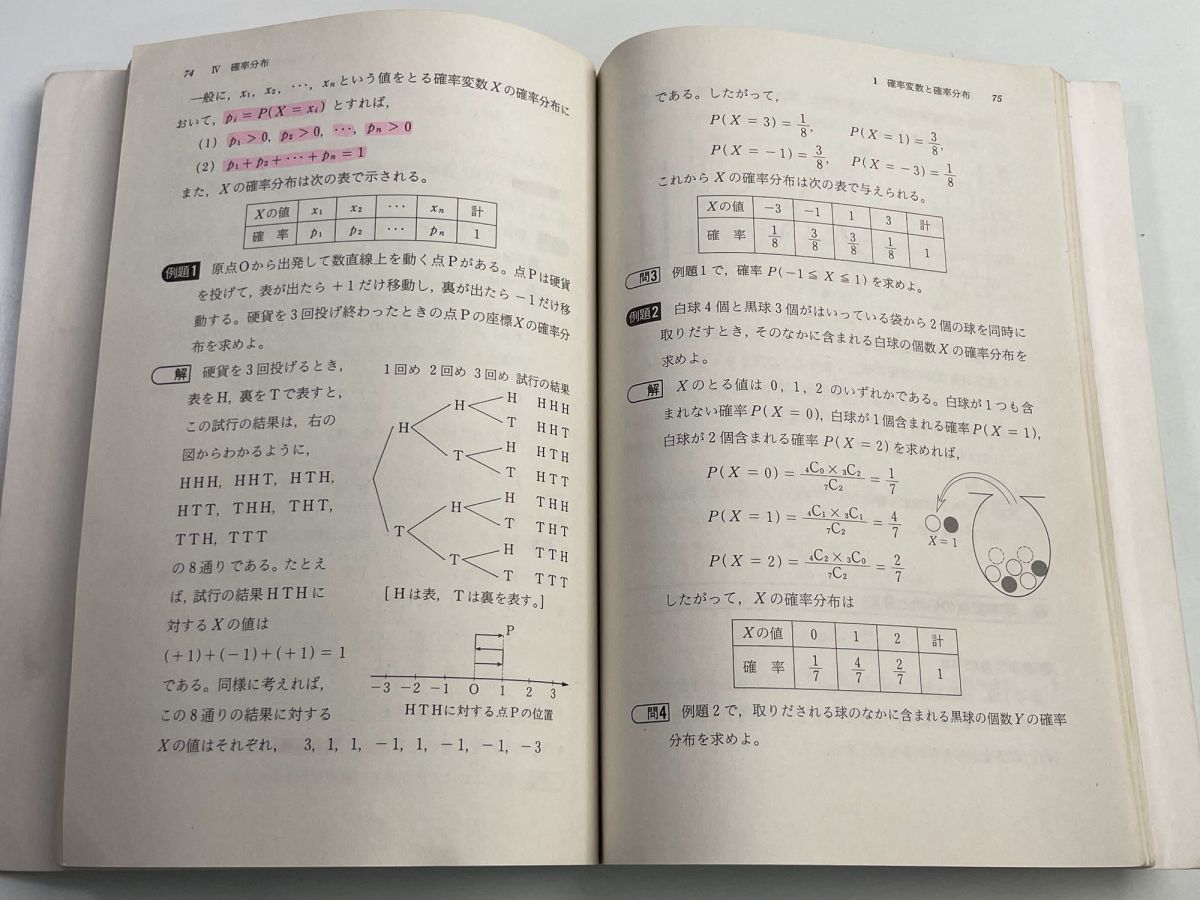 74 Ⅳ 確率分布
一般に，x₁，x₂，…，xₙという値をとる確率変数Xの確率分布に
おいて，pᵢ＝P(X＝xᵢ) とすれば，
(1) p₁＞0，p₂＞0，…，pₙ＞0
(2) p₁＋p₂＋…＋pₙ＝1
また，Xの確率分布は次の表で示される。
Xの値 x₁ x₂ … xₙ 計
確 率 p₁ p₂ … pₙ 1
例題1 原点Oから出発して数直線上を動く点Pがある。点Pは硬貨
を投げて，表が出たら ＋1だけ移動し，裏が出たら －1だけ移
動する。硬貨を3回投げ終わったときの点Pの座標Xの確率分
布を求めよ。
解 硬貨を3回投げるとき，
表をH，裏をTで表すと，
この試行の結果は，右の
図からわかるように，
HHH，HHT，HTH，
HTT，THH，THT，
TTH，TTT
の8通りである。たとえ
ば，試行の結果HTHに
対するXの値は
(＋1)＋(－1)＋(＋1)＝1
である。同様に考えれば，
この8通りの結果に対する
Xの値はそれぞれ， 3，1，1，－1，1，－1，－1，－3
1回め 2回め 3回め 試行の結果
H HHH
H
T HHT
H
H HTH
T
T HTT
H THH
H
T THT
T
H TTH
T
T TTT
[Hは表，Tは裏を表す。]
P
－3 －2 －1 O 1 2 3
HTHに対する点Pの位置
1 確率変数と確率分布 75
である。したがって，
P(X＝3)＝1/8， P(X＝1)＝3/8，
P(X＝－1)＝3/8， P(X＝－3)＝1/8
これからXの確率分布は次の表で与えられる。
Xの値 －3 －1 1 3 計
確 率 1/8 3/8 3/8 1/8 1
問3 例題1で，確率 P(－1≦X≦1) を求めよ。
例題2 白球4個と黒球3個がはいっている袋から2個の球を同時に
取りだすとき，そのなかに含まれる白球の個数Xの確率分布を
求めよ。
解 Xのとる値は 0，1，2 のいずれかである。白球が1つも含
まれない確率P(X＝0)，白球が1個含まれる確率P(X＝1)，
白球が2個含まれる確率 P(X＝2) を求めれば，
P(X＝0)＝₄C₀×₃C₂/₇C₂＝1/7
P(X＝1)＝₄C₁×₃C₁/₇C₂＝4/7
P(X＝2)＝₄C₂×₃C₀/₇C₂＝2/7
X＝1
したがって，Xの確率分布は
Xの値 0 1 2 計
確 率 1/7 4/7 2/7 1
問4 例題2で，取りだされる球のなかに含まれる黒球の個数Yの確率
分布を求めよ。